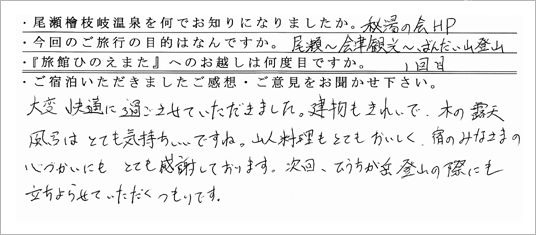 ・尾瀬檜枝岐温泉を何でお知りになりましたか。 秘湯の会HP
・今回のご旅行の目的はなんですか。 尾瀬〜会津観文〜ばんだい山登山
・『旅館ひのえまた』へのお越しは何度目ですか。 1回目
・ご宿泊いただきましたご感想・ご意見をお聞かせ下さい。
大変快適に過ごさせていただきました。建物もきれいで、木の露天
風呂はとても気持ちいいですね。山人料理もとてもおいしく、宿のみなさまの
心づかいにもとても感謝しております。次回、ひうちが岳登山の際にも
立ちよらせていただくつもりです。